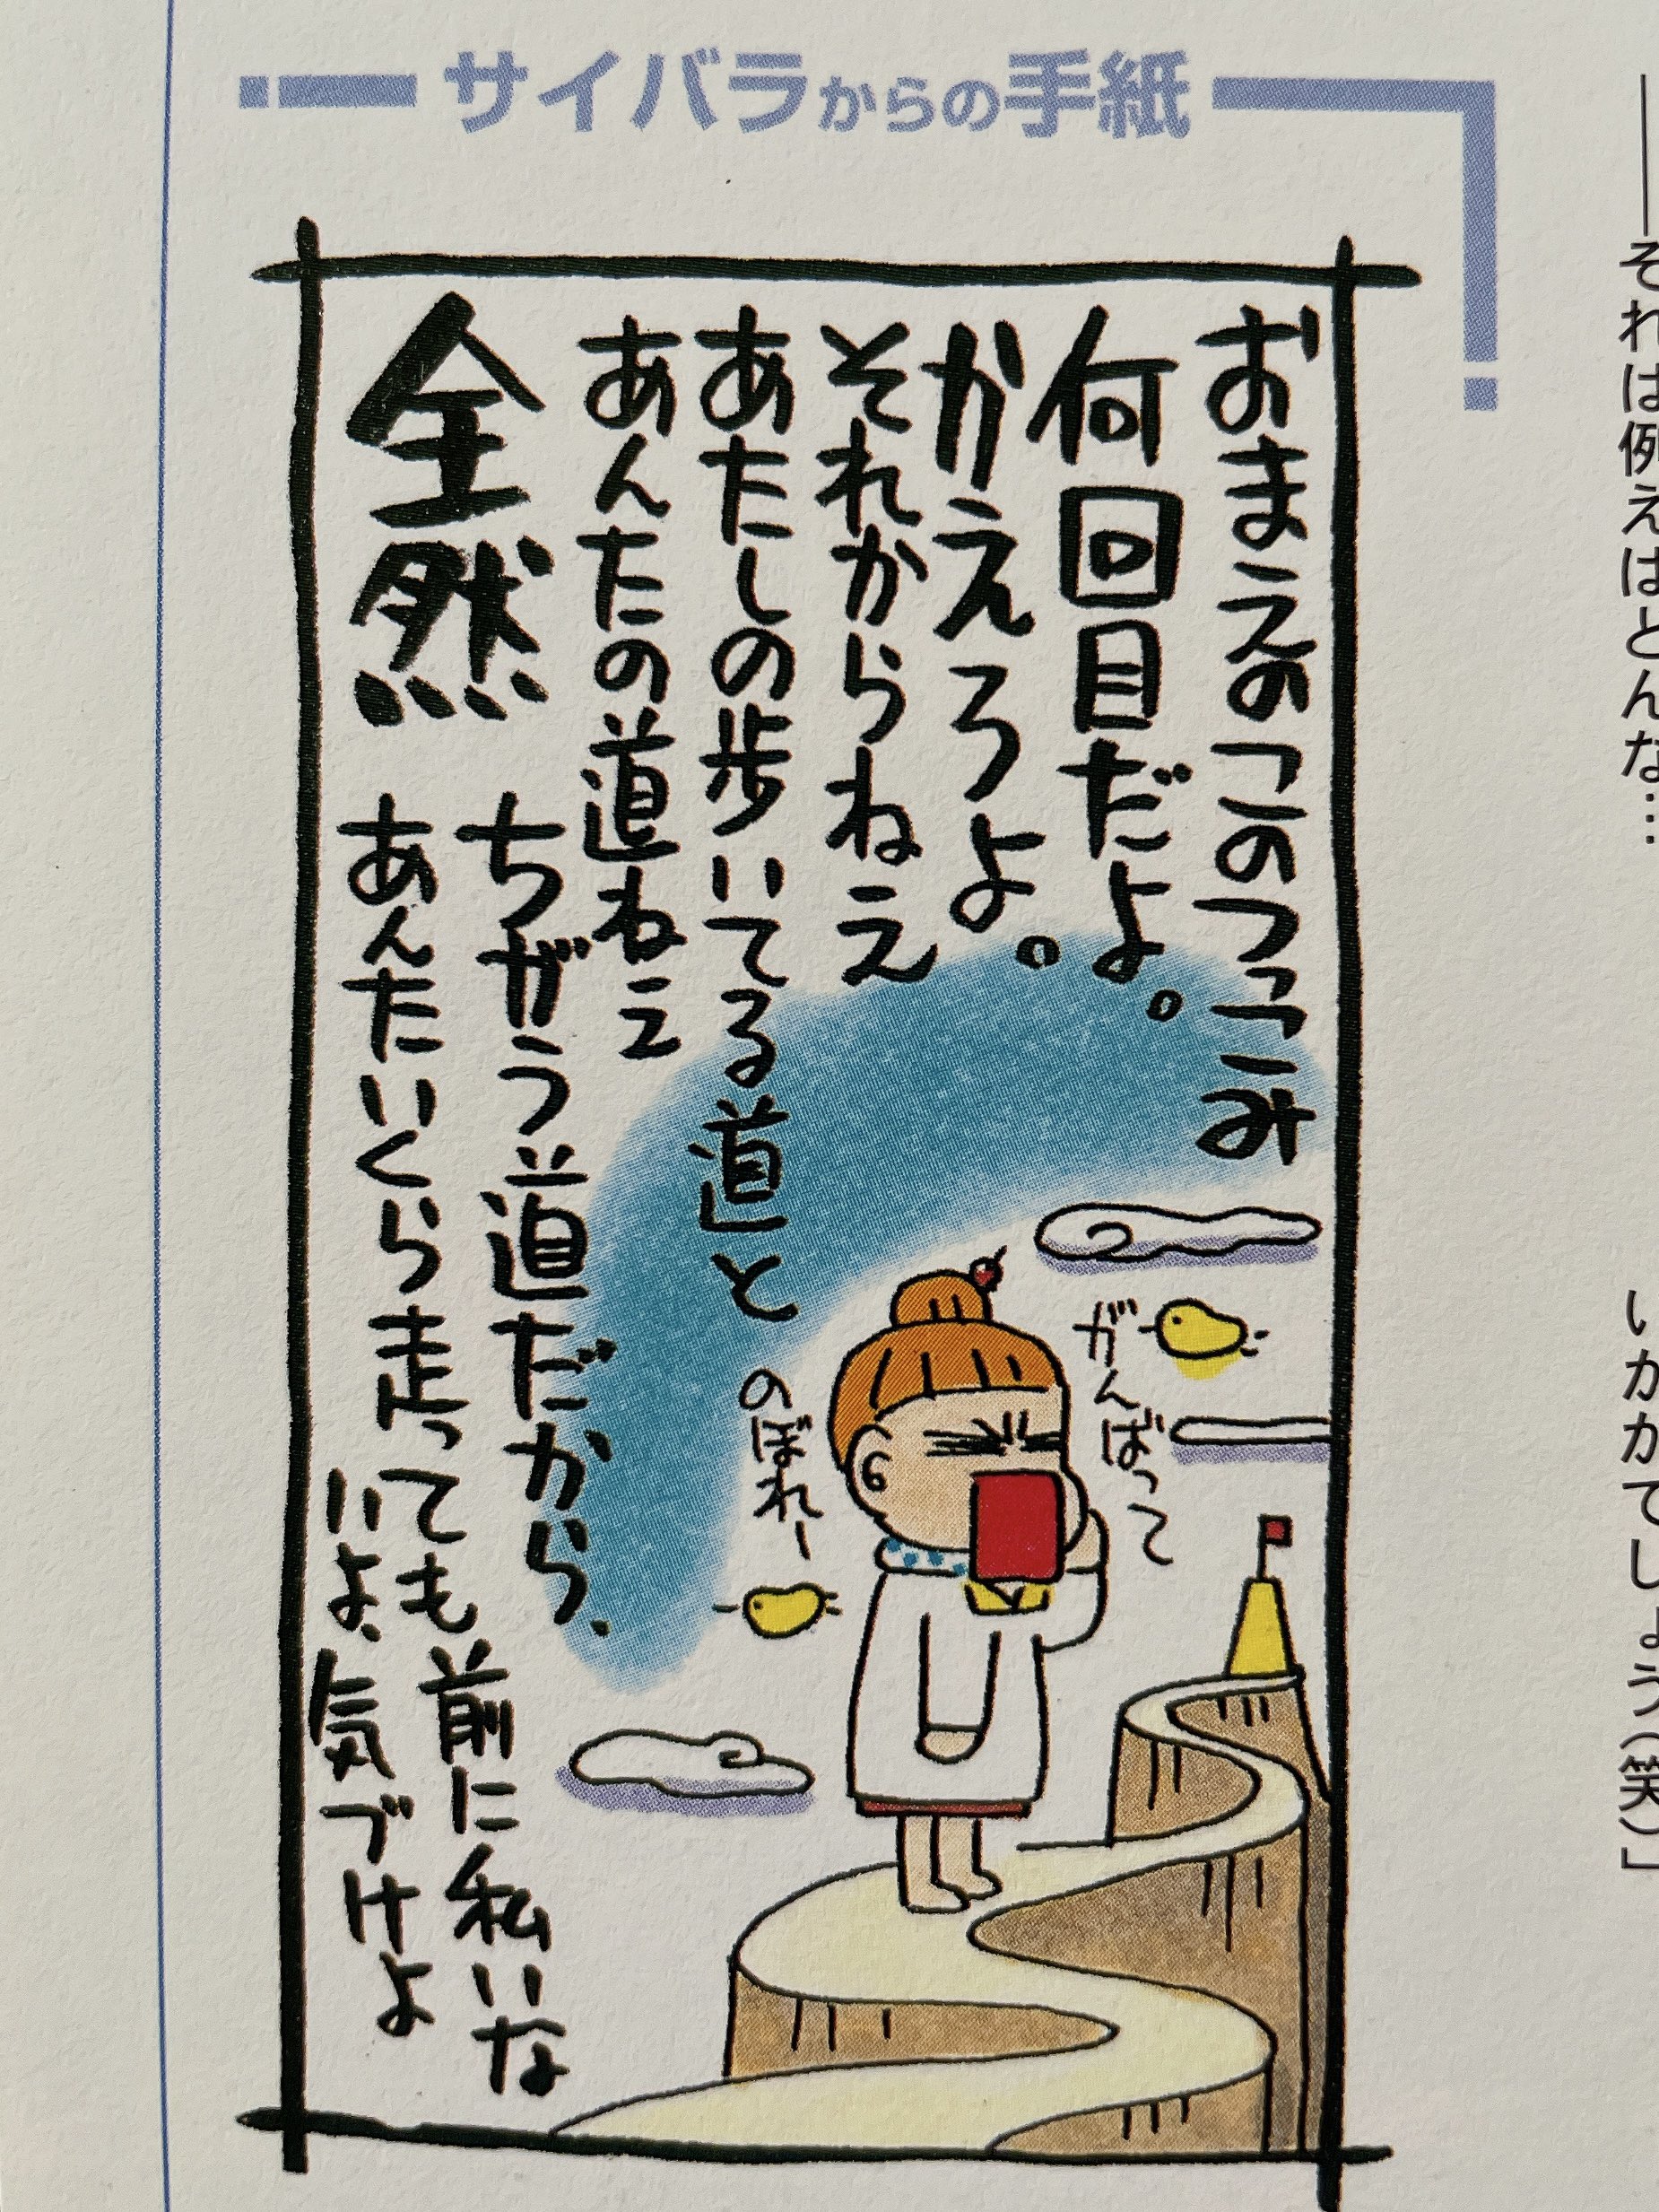 サイバラからの手紙
おまえのこのつっこみ
何回目だよ。
かえろよ。
それからねえ
あたしの歩いてる道と
あんたの道ねえ
全然
ちがう道だから、
あんたいくら走っても前に私いな
いよ、気づけよ
がんばって
のぼれー
――それは例えばどんな…
いかがでしょう(笑)」